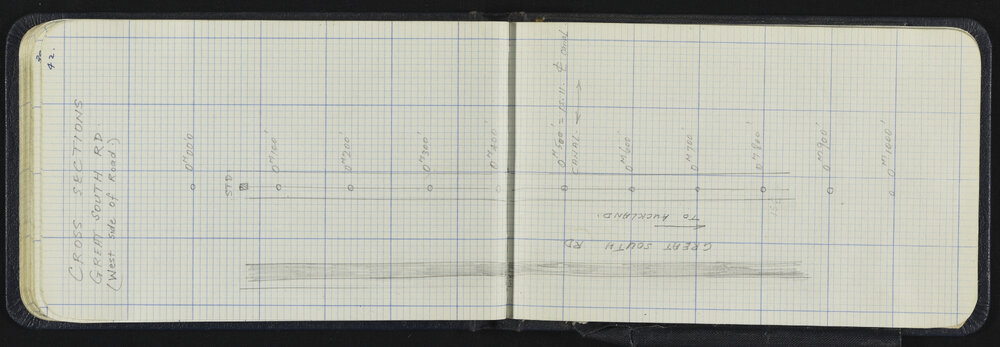 42.
CROSS SECTIONS
GREAT SOUTH RD.
(West side of Road)
STD
0ᴹ000
0ᴹ100'
0ᴹ200'
0ᴹ300'
0ᴹ400'
0ᴹ500' = 13.11. ₵ canal
CANAL.
0ᴹ600'
0ᴹ700'
0ᴹ800'
0ᴹ900'
0ᴹ1000'
TO AUCKLAND.
GREAT SOUTH RD